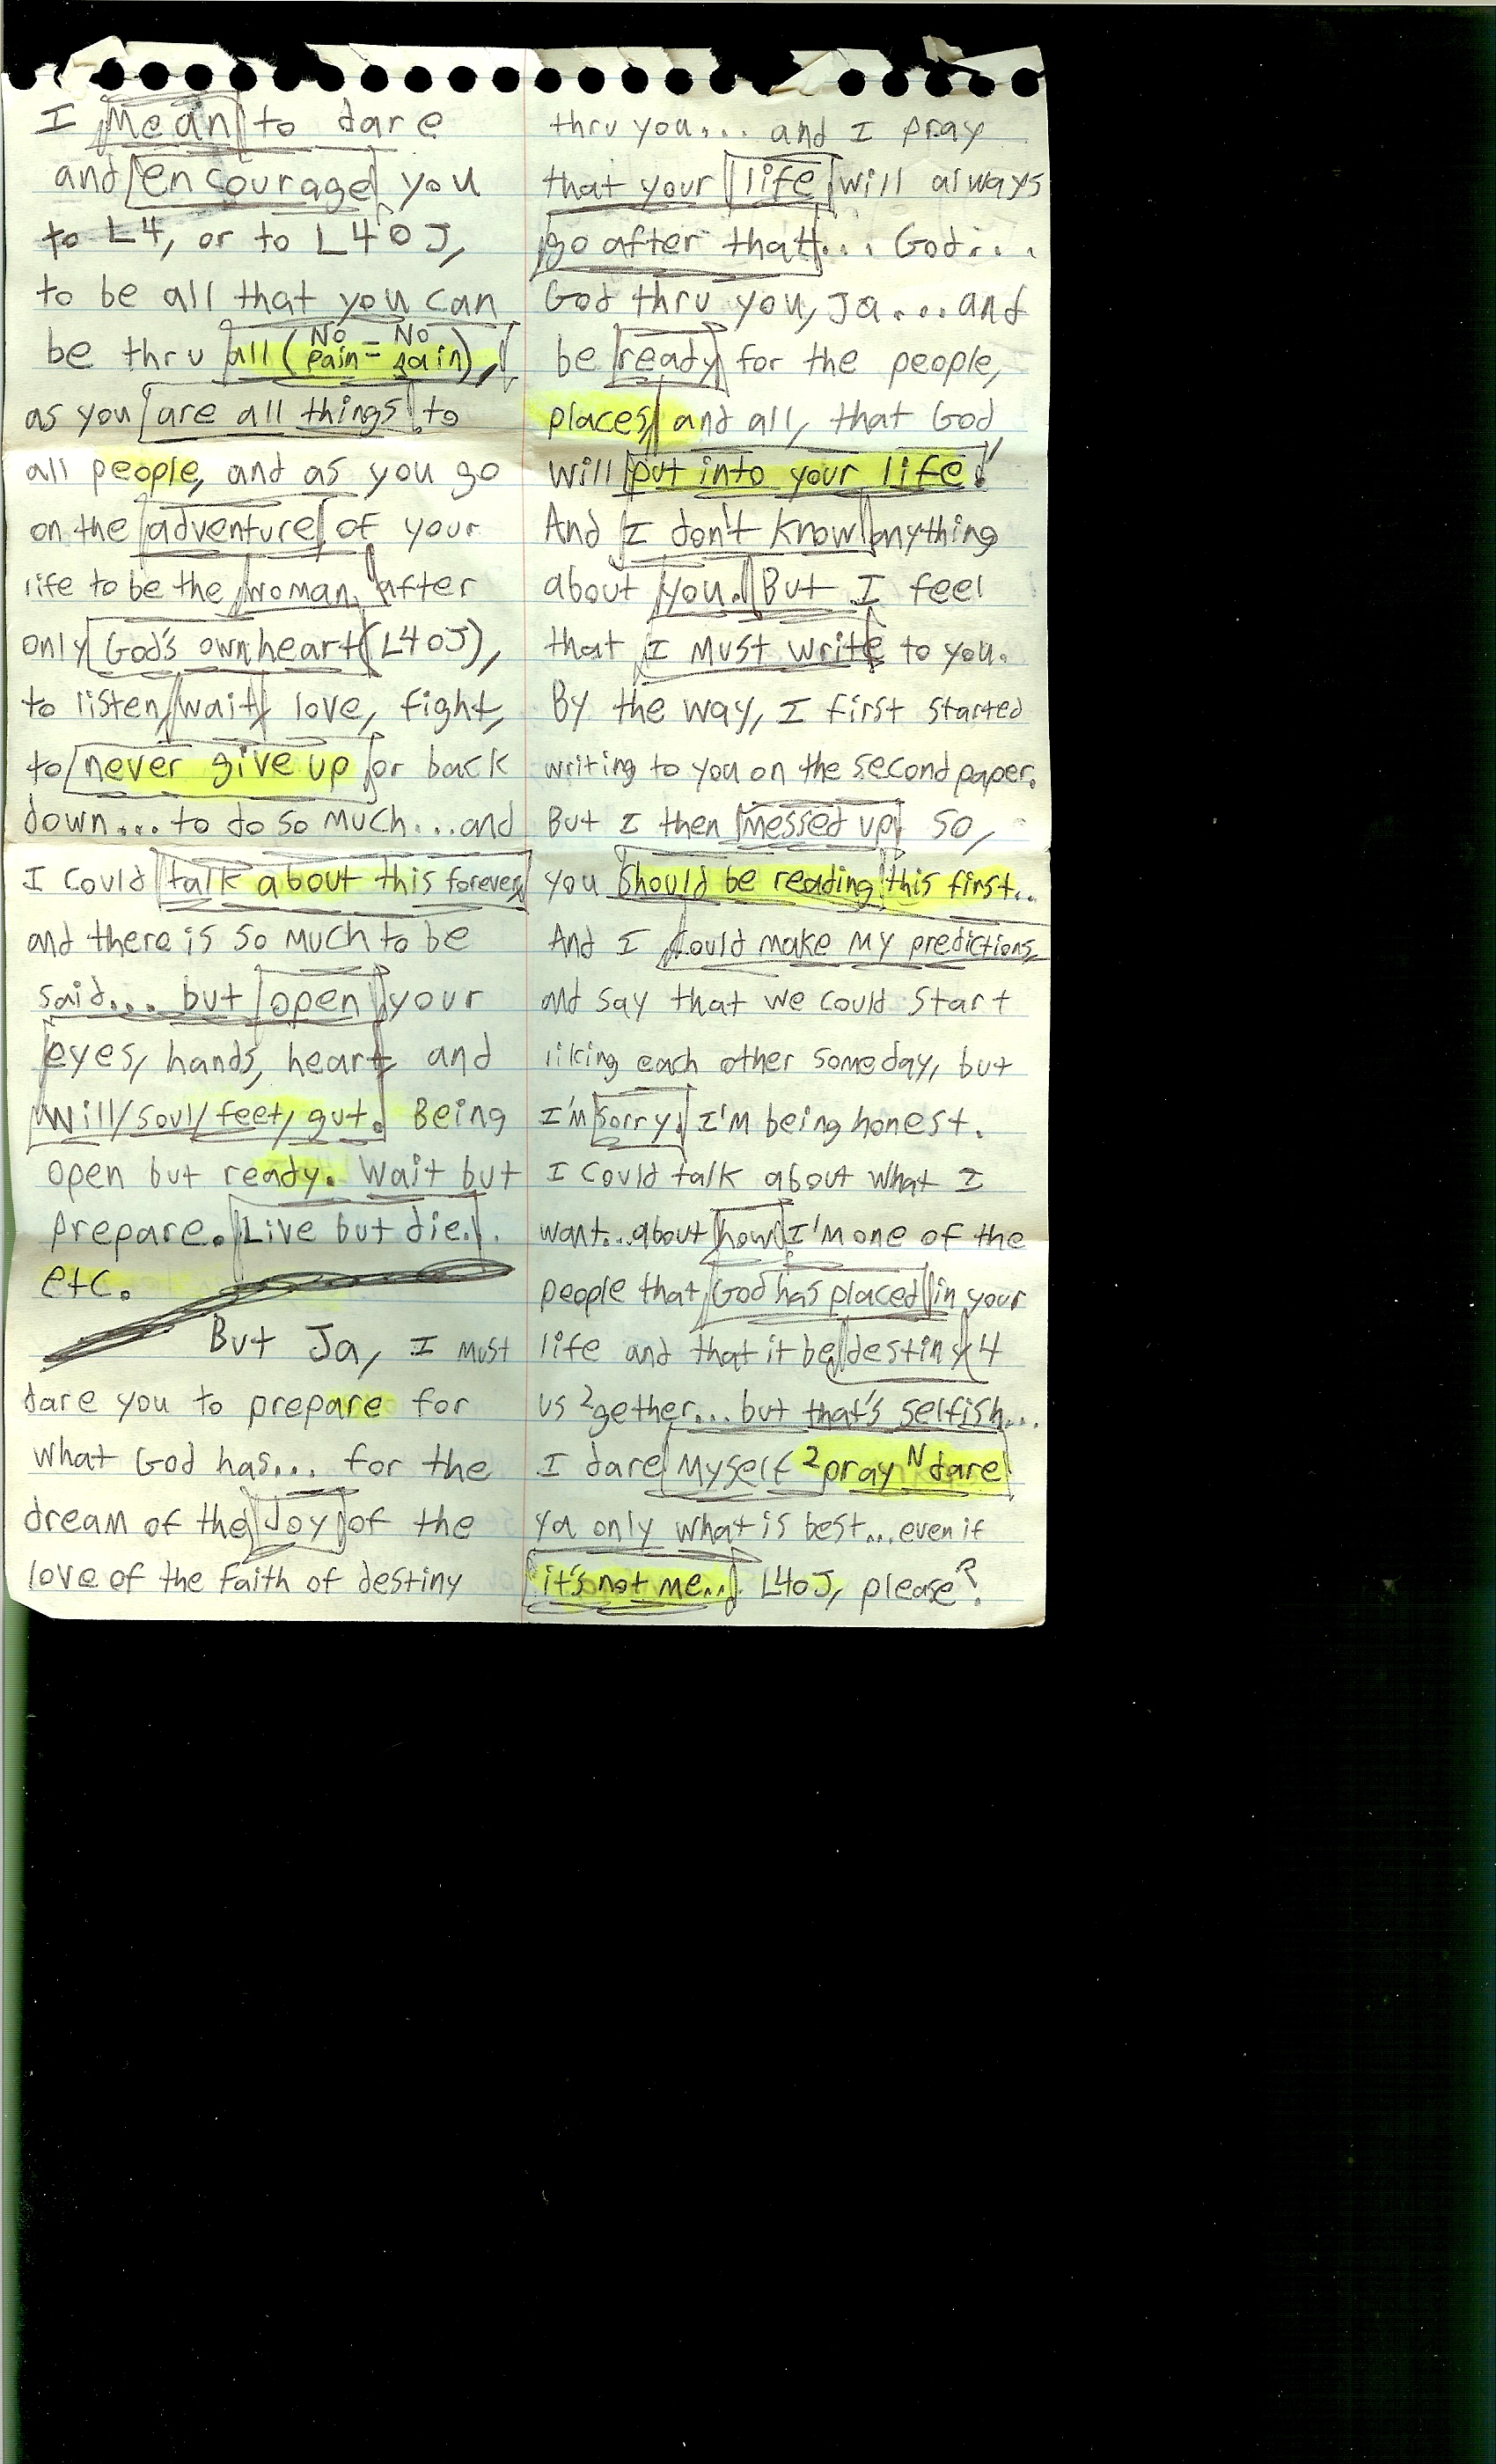 I mean to dare
and encourage you
to L4, or to L4OJ,
to be all that you can
be thru all (No pain = No gain),
as you are all things to
all people, and as you go
on the adventure of your
life to be the woman after
only God's own heart (L4OJ),
to listen, wait, love, fight,
to never give up or back
down... to do so much... and
I could talk about this forever,
and there is so much to be
said... but open your
eyes, hands, heart and
will/soul/feet, gut. Being
open but ready. Wait but
prepare. Live but die..
etc.
But Ja, I must
dare you to prepare for
what God has... for the
dream of the Joy of the
love of the Faith of destiny
thru you... and I pray
that your life will always
go after that... God...
God thru you, Ja... and
be ready for the people,
places, and all, that God,
will put into your life!
And I don't know anything
about you. But I feel
that I must write to you.
By the way, I first started
writing to you on the second paper.
But I then messed up so,
you should be reading this first...
And I could make my predictions,
and say that we could start
liking each other someday, but
I'm sorry. I'm being honest.
I could talk about what I
want... about how I'm one of the
people that God has placed in your
life and that it be destiny 4
us 2gether... but that's selfish...
I dare myself 2 pray N dare
ya only what is best... even if
it's not me... L4OJ, please?